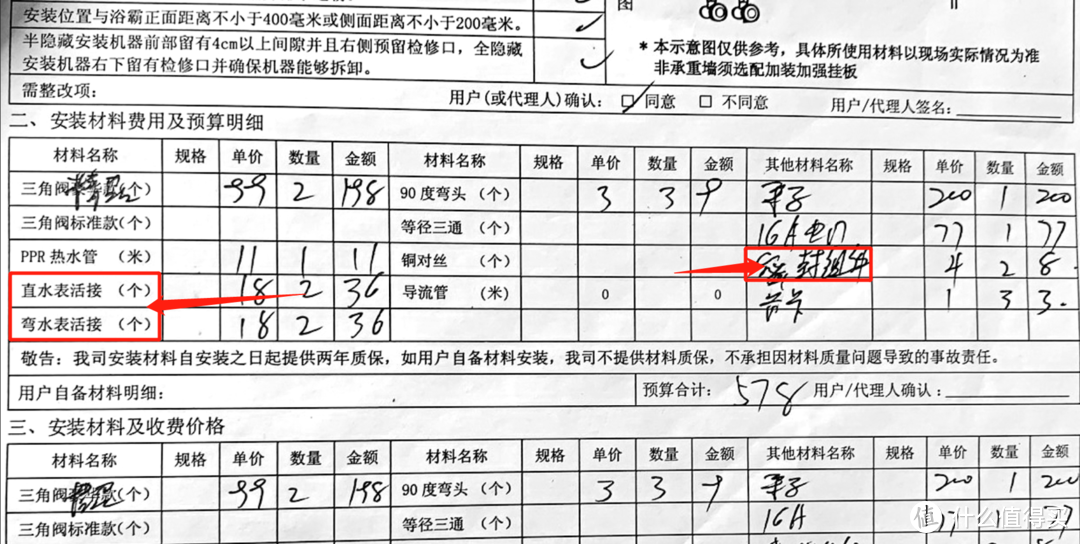 安装位置与浴霸正面距离不小于400毫米或侧面距离不小于200毫米。
图
半隐藏安装机器前部留有4cm以上间隙并且右侧预留检修口，全隐藏
安装机器右下留有检修口并确保机器能够拆卸。
* 本示意图仅供参考，具体所使用材料以现场实际情况为准
非承重墙须选配加装加强挂板
需整改项： 用户(或代理人)确认： 同意 不同意 用户/代理人签名：
二、安装材料费用及预算明细
材料名称 规格 单价 数量 金额 材料名称 规格 单价 数量 金额 其他材料名称 规格 单价 数量 金额
三角阀 (个) 99 2 198 90度弯头（个） 3 3 9 200 1 200
三角阀标准款(个) 等径三通（个） 16A 77 1 77
PPR热水管（米） 11 1 11 铜对丝（个） 密封组件 4 2 8
直水表活接（个） 18 2 36 导流管（米） 0 0 1 3 3
弯水表活接（个） 18 2 36
敬告：我司安装材料自安装之日起提供两年质保，如用户自备材料安装，我司不提供材料质保，不承担因材料质量问题导致的事故责任。
用户自备材料明细： 预算合计： 578 用户/代理人确认：
三、安装材料及收费价格
材料名称 规格 单价 数量 金额 材料名称 规格 单价 数量 金额 其他材料名称 规格 单价 数量 金额
三角阀 (个) 99 2 198 90度弯头（个） 3 3 9 200 1 200
三角阀标准款(个) 等径三通（个） 16A 77 1 77
值 什么值得买